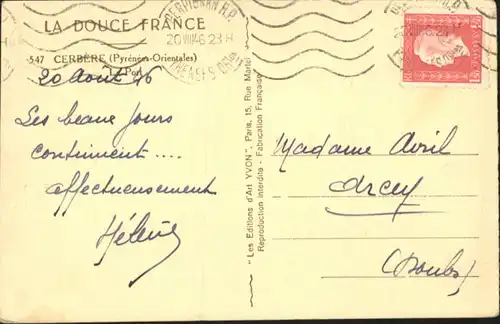 LA DOUCE FRANCE
547 CERBÈRE (Pyrénées-Orientales)
Port
PERPIGNAN R.P.
20 VIII 46 23H
20 Août 46
Les beaux jours
continuent ....
affectueusement
Hélène
"Les Editions d'Art YVON", Paris, 15, Rue Martel
Reproduction interdite - Fabrication Française
Madame Avril
Arcey
(Doubs)